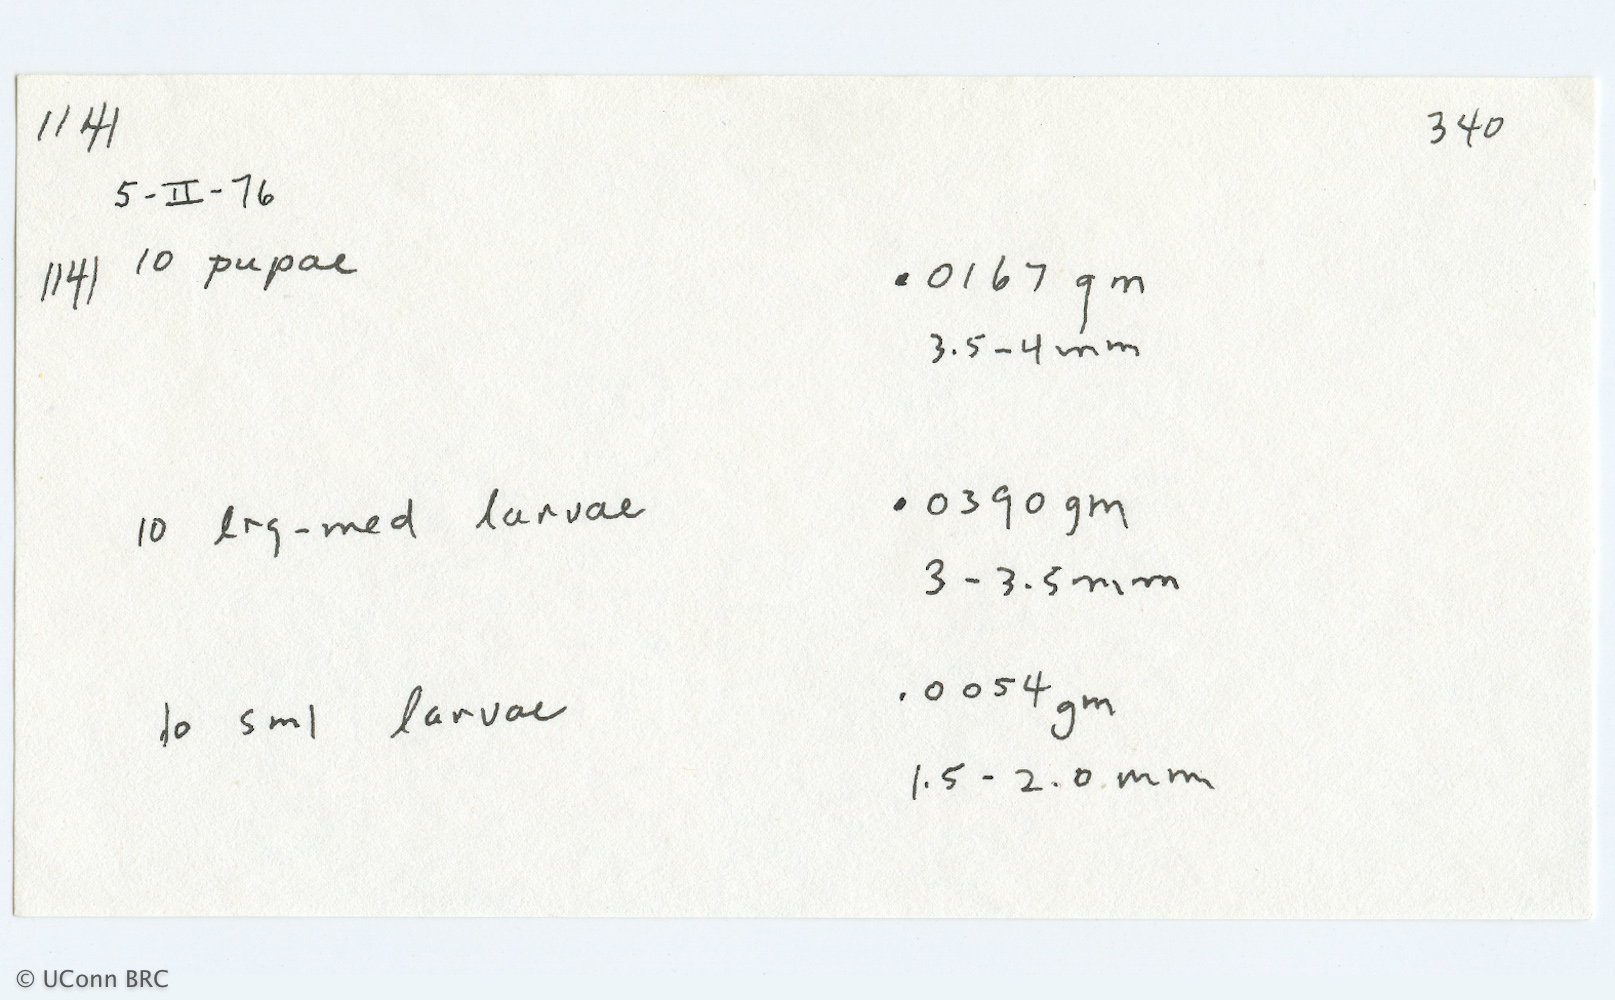 1141 340
5-II-76
1141 10 pupae .0167 gm
3.5-4mm
10 lrg-med larvae .0390 gm
3-3.5mm
10 sml larvae .0054 gm
1.5-2.0 mm
© UConn BRC